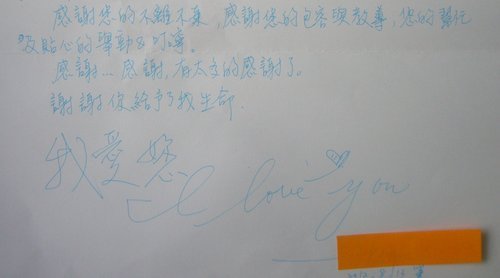 感謝您的不離不棄,感謝您的包容與教導,您的舉凡
及貼心的舉動&叮嚀。
感謝...感謝,有太多的感謝了。
謝謝你給予我生命.
我愛您
I love you